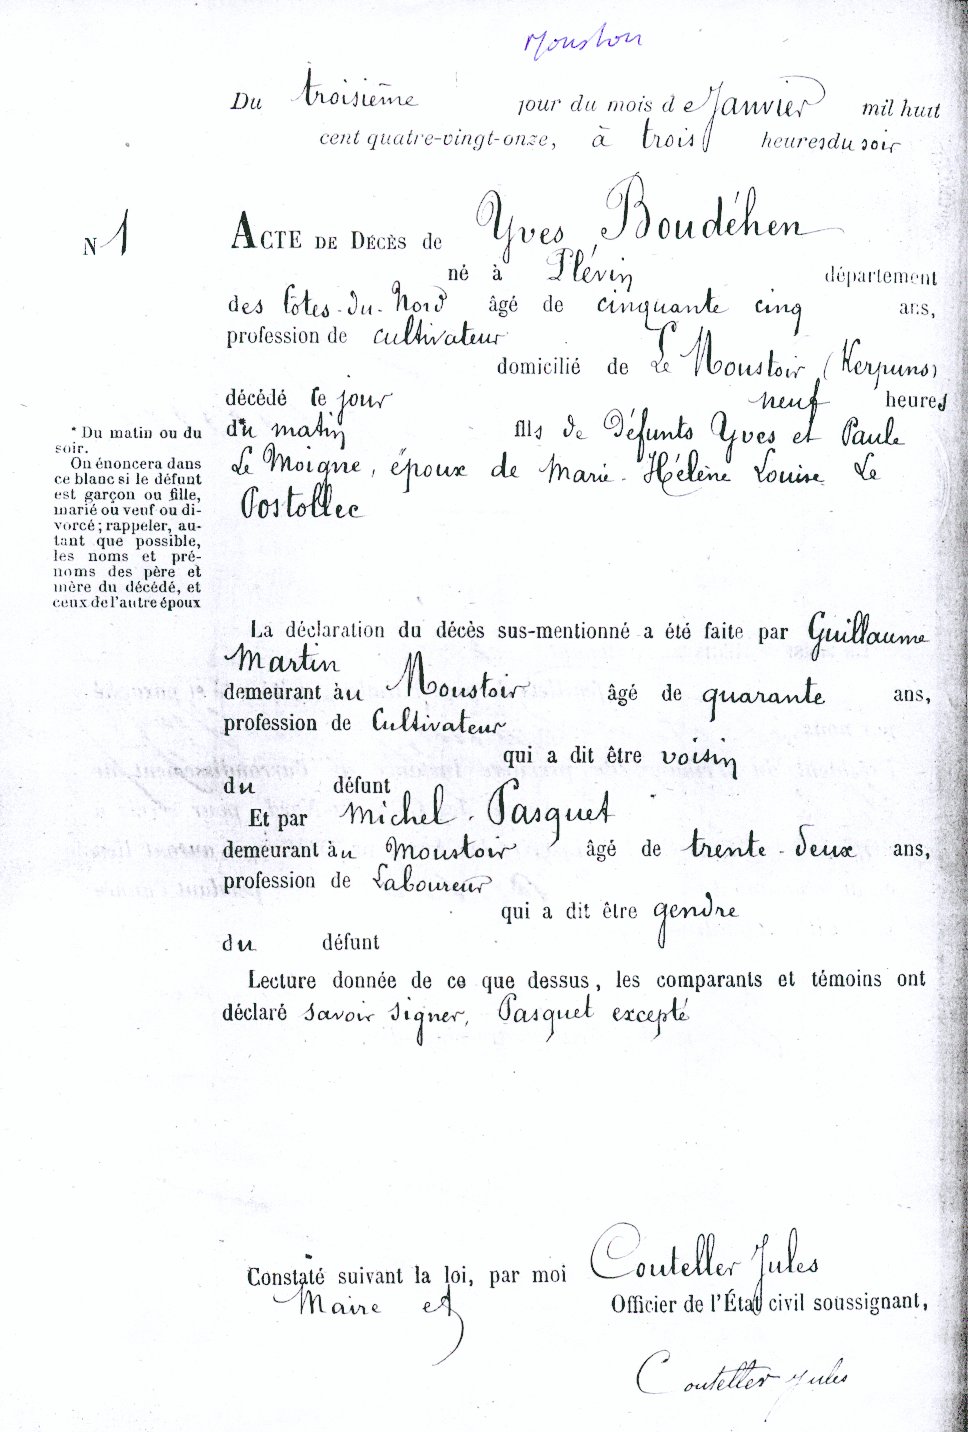 Du troisième jour du mois de Janvier mil huit
cent quatre-vingt-onze, à trois heures du soir
N 1
ACTE DE DÉCÈS de Yves Boudéhen
né à Plévin département
des Côtes-du-Nord âgé de cinquante cinq ans,
profession de cultivateur
domicilié de Le Moustoir (Kerpuns)
décédé ce jour neuf heures
du matin fils de Défunts Yves et Paule
Le Moigne, époux de Marie-Hélène Louise Le
Postollec
* Du matin ou du
soir.
On énoncera dans
ce blanc si le défunt
est garçon ou fille,
marié ou veuf ou di-
vorcé; rappeler, au-
tant que possible,
les noms et pré-
noms des père et
mère du décédé, et
ceux de l'autre époux
La déclaration du décès sus-mentionné a été faite par Guillaume
Martin
demeurant au Moustoir âgé de quarante ans,
profession de Cultivateur
qui a dit être voisin
du défunt
Et par Michel Pasquet
demeurant au Moustoir âgé de trente-deux ans,
profession de Laboureur
qui a dit être gendre
du défunt
Lecture donnée de ce que dessus, les comparants et témoins ont
déclaré savoir signer, Pasquet excepté
Constaté suivant la loi, par moi Couteller Jules
Maire et Officier de l'État civil soussignant,
Couteller Jules